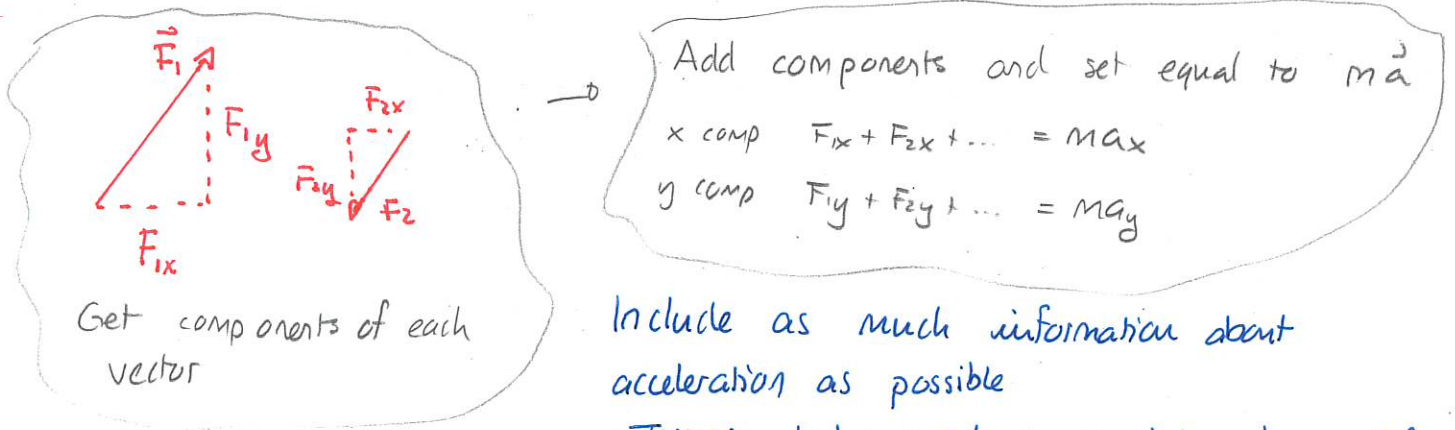 F⃗₁
F₁y
F₁x
F₂x
F₂y
F₂
Get components of each
vector
Add components and set equal to ma⃗
x comp F₁x + F₂x + ... = max
y comp F₁y + F₂y + ... = may
Include as much information about
acceleration as possible